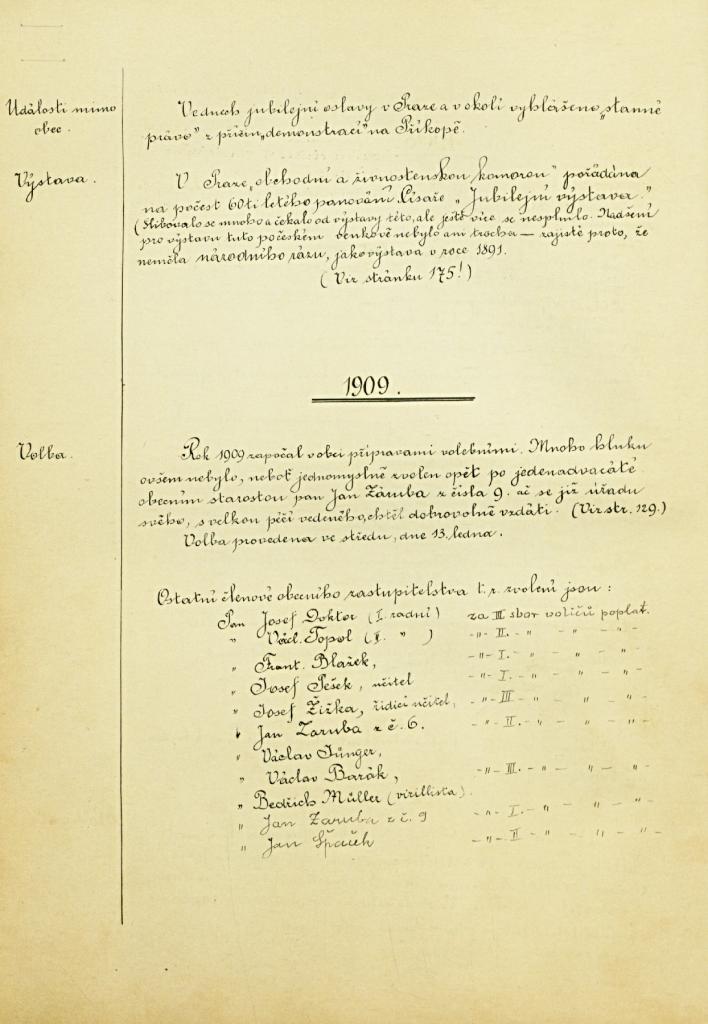 Události mimo
obce.
Ve dnech jubilejní oslavy v Praze a v okolí vyhlášeno „stanné
právo" z příčin „demonstrací" na Příkopě.
Výstava.
V Praze „obchodní a živnostenskou komorou" pořádána
na počest 60ti letého panování Císaře „Jubilejní výstava."
(Slibovalo se mnoho a čekalo od výstavy této, ale ještě více se nesplnilo. Nadšení
pro výstavu tuto po českém venkově nebylo ani trocha — zajisté proto, že
neměla národního rázu, jako výstava v roce 1891.
(Viz stránku 175!)
1909.
Volba.
Rok 1909 započal v obci přípravami volebními. Mnoho hluku
ovšem nebylo, neboť jednomyslně zvolen opět po jedenadvacáté
obecním starostou pan Jan Záruba z čísla 9. ač se již úřadu
svého, s velkou péčí vedeného, chtěl dobrovolně vzdáti. (Viz str. 129.)
Volba provedena ve středu, dne 13. ledna.
Ostatní členové obecního zastupitelstva t. r. zvolení jsou:
Pan Josef Doktor (I. radní) za III sbor voličů poplat.
" Václ. Topol (II. " ) -"- II. - " - " - "
" Frant. Blažek, -"- I. - " - " - "
" Josef Pešek, učitel -"- I. - " - " - "
" Josef Žižka, řídící učitel, -"- III - " - " - "
" Jan Zaruba z č. 6. -"- II. - " - " - "
" Václav Jünger,
" Václav Barák, -"- III. - " - " - "
" Bedřich Müller (virilista).
" Jan Zaruba z č. 9 -"- I. - " - " - "
" Jan Špaček -"- II - " - " - "